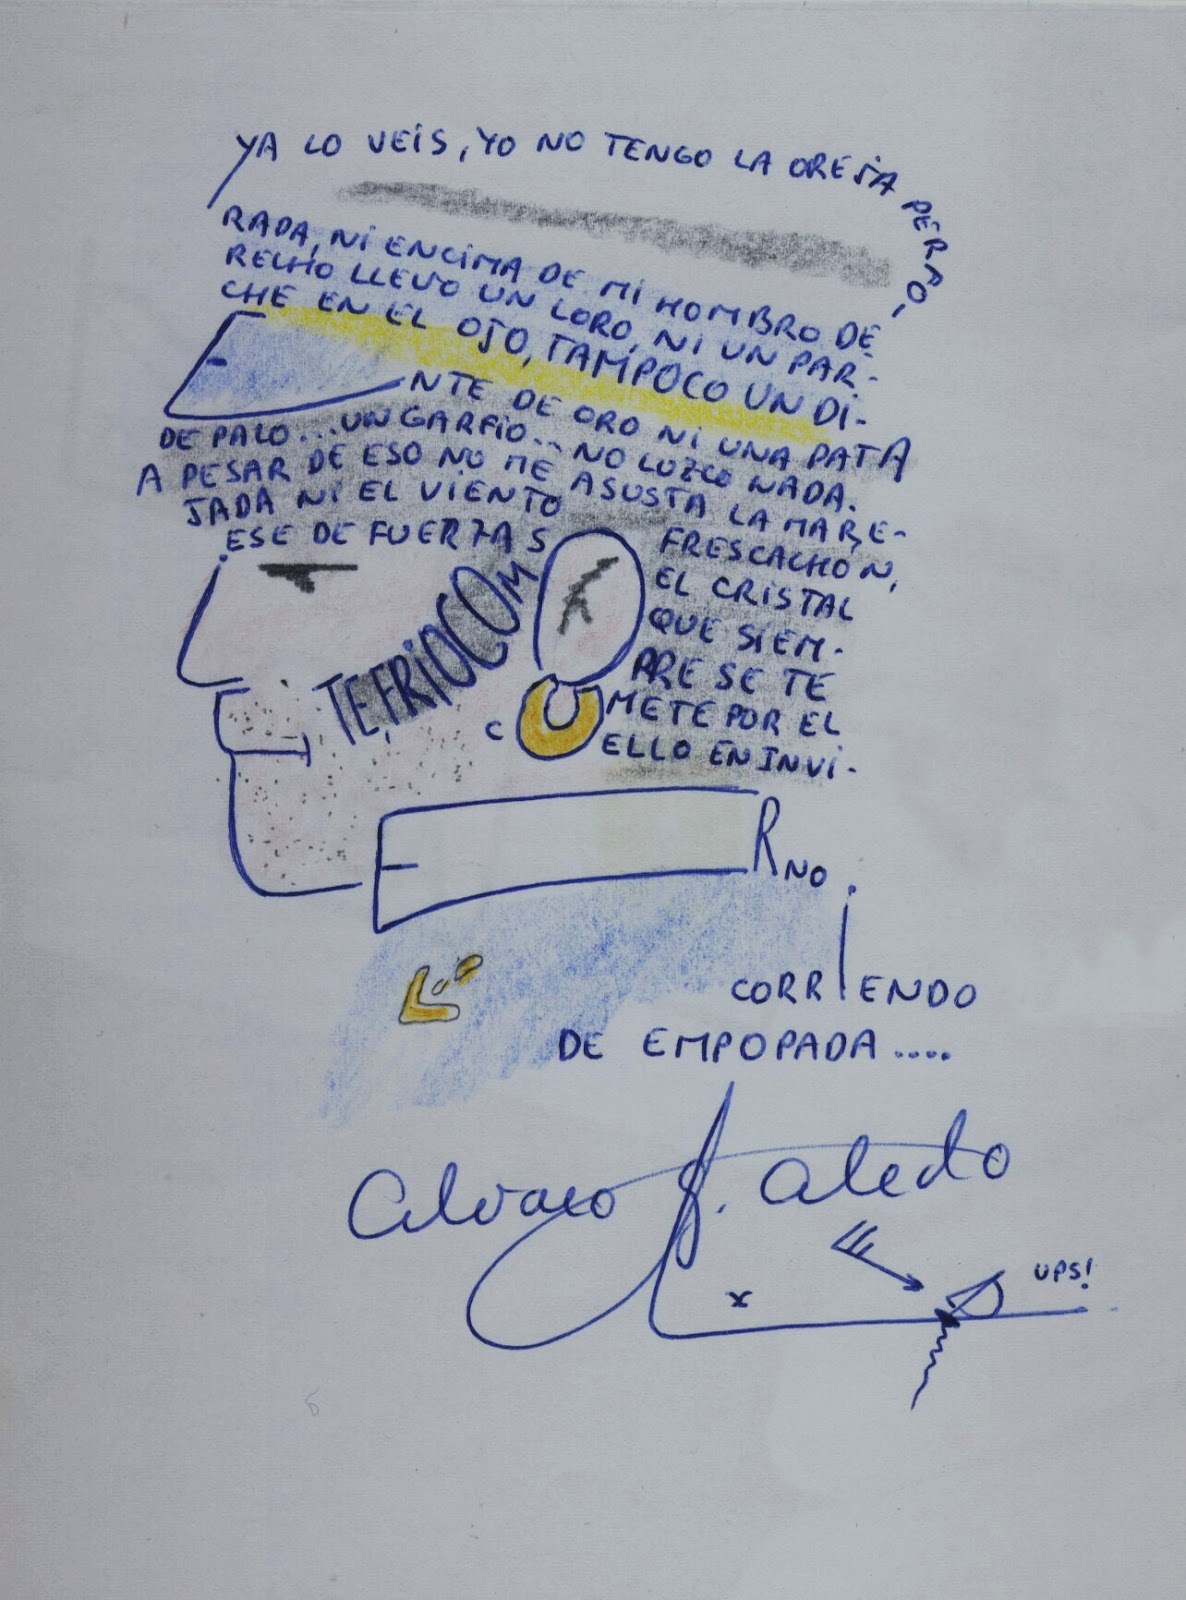 YA LO VEIS, YO NO TENGO LA OREJA PERFO-
RADA, NI ENCIMA DE MI HOMBRO DE-
RECHO LLEVO UN LORO, NI UN PAR-
CHE EN EL OJO, TAMPOCO UN DI-
NTE DE ORO NI UNA PATA
DE PALO... UN GARFIO... NO LUZCO NADA.
A PESAR DE ESO NO ME ASUSTA LA MAR, E-
JADA NI EL VIENTO FRESCACHÓN,
ESE DE FUERZA S
TE, FRIO COM
EL CRISTAL
QUE SIEM-
PRE SE TE
METE POR EL
C ELLO EN INVI-
RNO
CORRIENDO
DE EMPOPADA....
Alvaro J. Aledo
UPS!
x